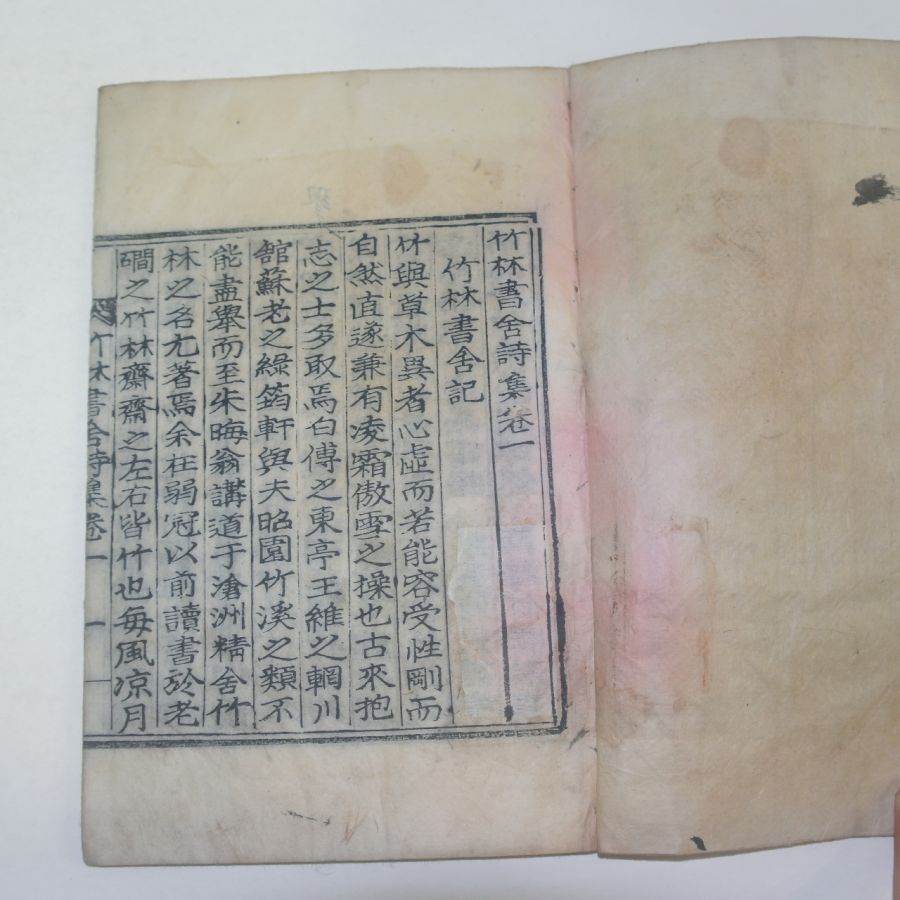 竹林書舍詩集卷一
竹林書舍記
竹與草木異者心虛而若能容受性剛而
自然直遂兼有凌霜傲雪之操也古來抱
志之士多取焉白傅之東亭王維之輞川
舘蘇老之綠筠軒與夫昭園竹溪之類不
能盡擧而至朱晦翁講道于滄洲精舍竹
林之名尤著焉余在弱冠以前讀書於老
磵之竹林齋齋之左右皆竹也每風凉月
竹林書舍詩集卷一 一